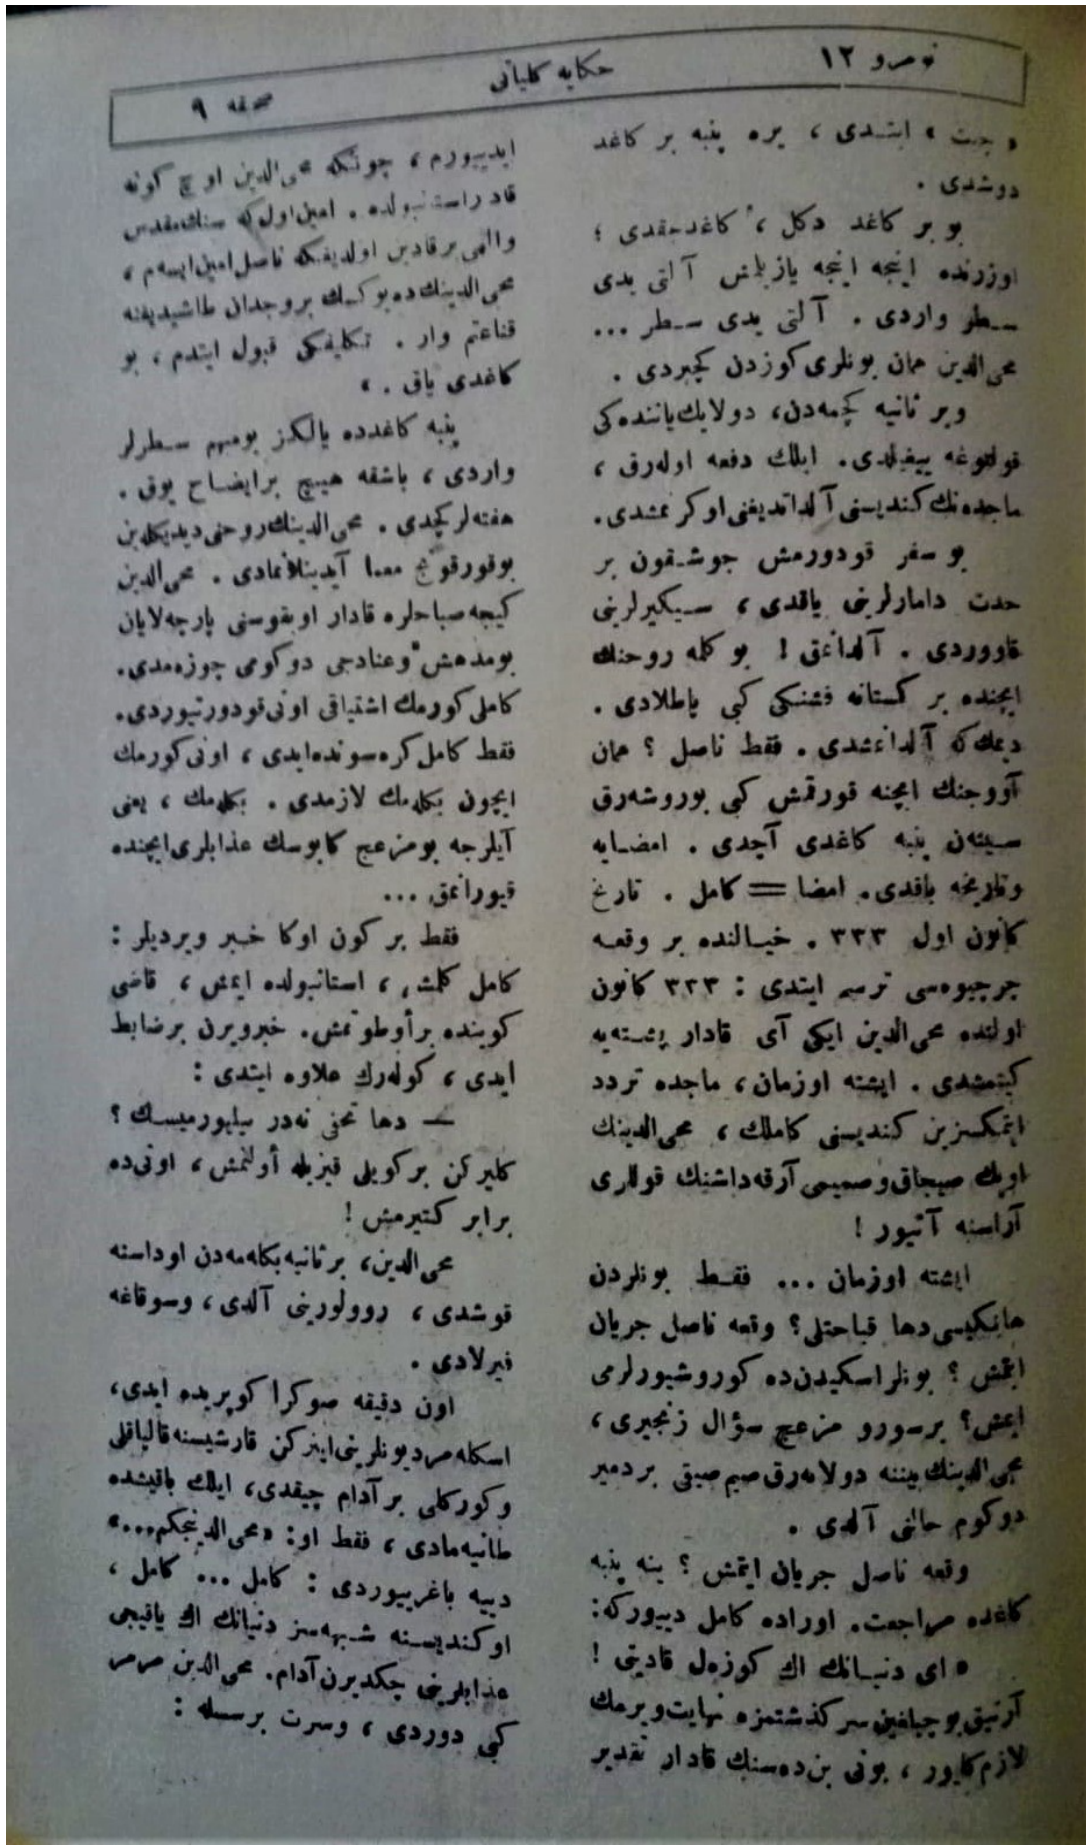 نومرو ١٢
حكایه كلیاتی
صحیفه ٩
« چت » ایتدی ، یره پنبه بر كاغد
دوشدی .
بو بر كاغد دكل ، كاغدجقدی ؛
اوزرنده اینجه اینجه یازیلمش آلتی یدی
سطر واردی . آلتی یدی سطر ...
محی‌الدین همان بونلری كوزدن كچیردی .
وبر ثانیه كچمه‌دن، دولابك یاننده‌كی
قولتوغه ییقیلدی. ایلك دفعه اوله‌رق ،
ماجده‌نك كندیسنی آلداتدیغنی اوكرنمشدی.
بو سفر قودورمش جوشقون بر
حدت دامارلرینی یاقدی ، سیكیرلرینی
قاووردی . آلدانمق ! بو كلمه روحنك
ایچنده بر كستانه فشنكی كبی پاطلادی .
دیمك كه آلدانمشدی . فقط ناصل ؟ همان
آووجنك ایچنه قورقمش كبی بوروشه‌رق
سینه‌ن پنبه كاغدی آچدی . امضایه
وتاریخه باقدی. امضا = كامل . تاریخ
كانون اول ٣٣٣ . خیالنده بر وقعه
چرچیوه‌سی ترسم ایتدی : ٣٢٣ كانون
اولنده محی‌الدین ایكی آی قادار پشته‌یه
كیتمشدی . ایشته اوزمان ، ماجده تردد
ایتمكسزین كندیسنی كاملك ، محی‌الدینك
اوپك صیجاق و صمیمی آرقه‌داشنك قوللری
آراسنه آتیور !
ایشته اوزمان ... فقط بونلردن
هانكیسی دها قباحتلی؟ وقعه ناصل جریان
ایتمش ؟ بونلر اسكیدن‌ده كوروشیورلرمی
ایمش؟ برسورو مزعج سؤال زنجیری ،
محی‌الدینك بیننه دولانه‌رق صیم صیقی بر دمیر
دوكوم حالنی آلدی .
وقعه ناصل جریان ایتمش ؟ ینه پنبه
كاغده مراجعت. اوراده كامل دییوركه:
« ای دنیانك اك كوزه‌ل قادینی !
آرتیق بو چیلغین سركذشتمزه نهایت ویرمك
لازم كلیور ، بونی بن‌ده سنك قادار تقدیر
ایدییورم ، چونكه محی‌الدین اوچ كونه
قادر استانبولده . امین اول كه سنك مقدس
والهی بر قادین اولدیغكه ناصل امین ایسه‌م ،
محی‌الدینك‌ده یوكسك بر وجدان طاشیدیغنه
قناعتم وار . تكلیفكی قبول ایتدم ، بو
كاغدی یاق . »
پنبه كاغدده یالكز بومبهم سطرلر
واردی ، باشقه هییچ بر ایضاح یوق .
هفته‌لر كچدی . محی‌الدینك روحنی دیدیكله‌ین
بوقورقونج معما آیدینلانمادی . محی‌الدین
كیجه صباحلره قادار اویقوسنی پارچه‌لایان
بومدهش وعنادجی دوكومی چوزه‌مدی.
كاملی كورمك اشتیاقی اونی قودورتیوردی.
فقط كامل كره‌سونده ایدی ، اونی كورمك
ایچون بكله‌مك لازمدی . بكله‌مك ، یعنی
آیلرجه بومزعج كابوسك عذابلری ایچنده
قیورانمق ...
فقط بر كون اوكا خبر ویردیلر :
كامل كلمش ، استانبولده ایمش ، قاضی
كوینده بر أو طوتمش. خبرویرن برضابط
ایدی ، كوله‌رك علاوه ایتدی :
— دها تحفی نه‌در بیلیورمیسك ؟
كلیركن بركویلی قیزیله أولنمش ، اونی‌ده
برابر كتیرمش !
محی‌الدین، برثانیه بكله‌مه‌دن اوداسنه
قوشدی ، روولورینی آلدی ، وسوقاغه
فیرلادی .
اون دقیقه صوكرا كوپریده ایدی،
اسكله مردیونلرینی اینركن قارشیسنه قالپاقلی
وكوركلی بر آدام چیقدی، ایلك باقیشده
طانیه‌مادی ، فقط او: «محی‌الدینجكم...»
دییه باغریبوردی : كامل ... كامل ،
اوكندیسنه شبهه‌سز دنیانك اك یاقیجی
عذابلرینی چكدیرن آدام. محی‌الدین مرمر
كبی دوردی ، وسرت برسسله :